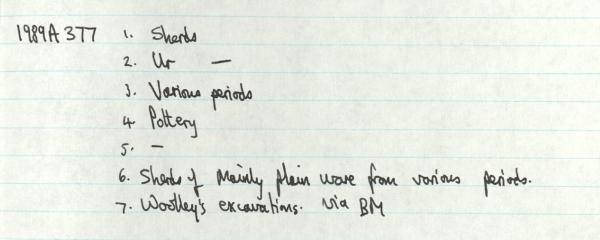 1989A377 1. Sherds
2. Ur —
3. Various periods
4. Pottery
5. —
6. Sherds of mainly plain ware from various periods.
7. Woolley's excavations. via BM